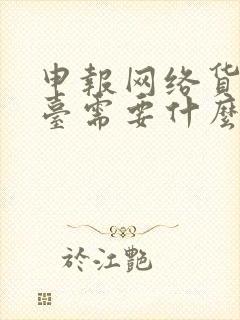 申報网络货
臺需要什麼
於江艷